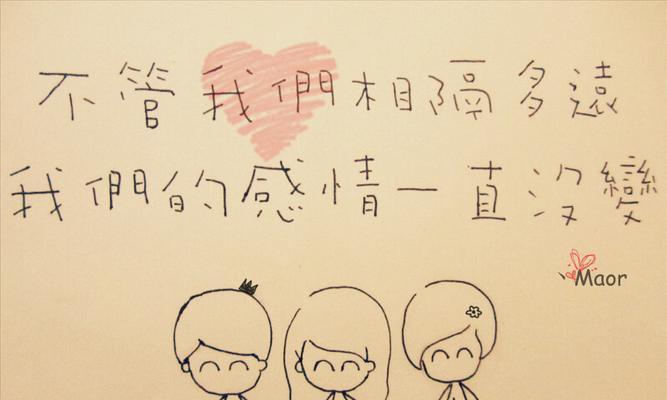 不管我們相隔多遠
我們的感情一直沒變
Maor